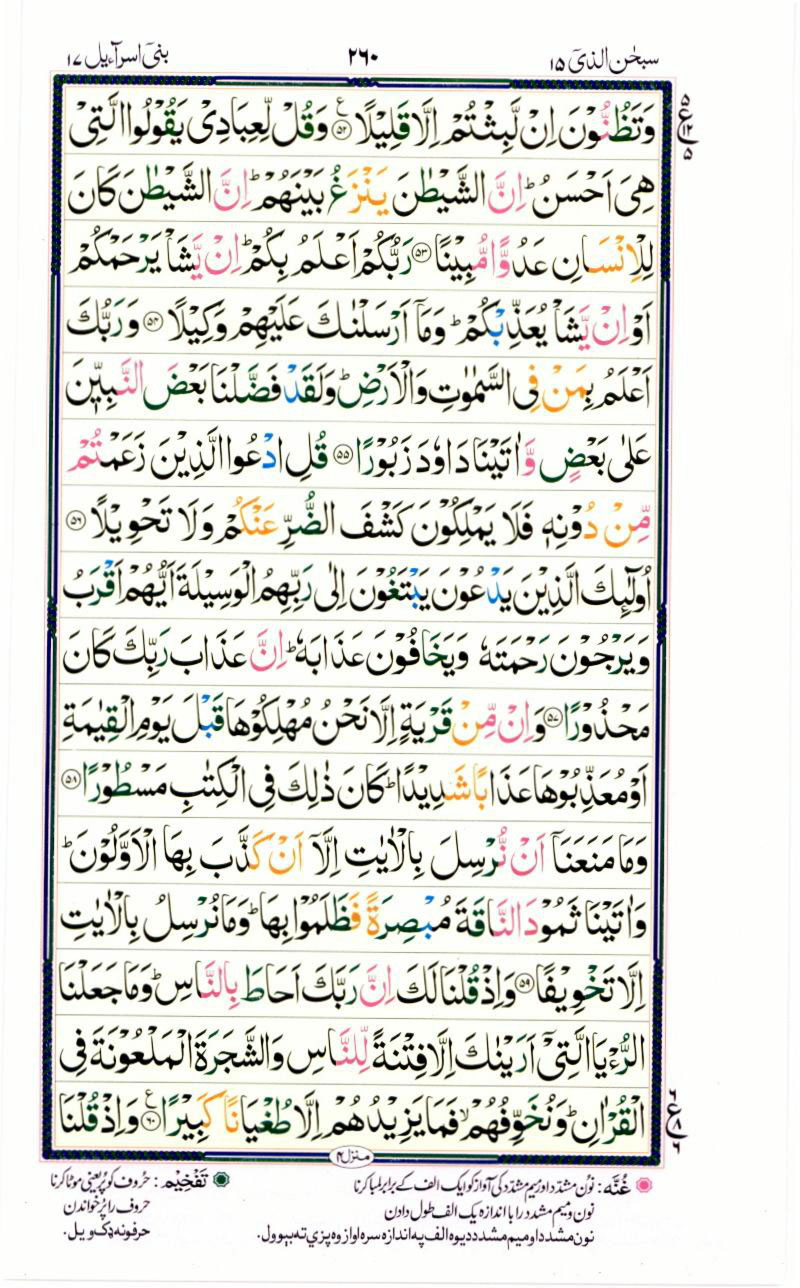 سبحٰن الذیٓ ۱۵ ۲۶۰ بنیٓ اسرآءیل ۱۷
وَتَظُنُّوْنَ اِنْ لَّبِثْتُمْ اِلَّا قَلِيْلًا ۝۵۲ؑ وَقُلْ لِّعِبَادِىْ يَقُوْلُوا الَّتِىْ
هِىَ اَحْسَنُ ؕ اِنَّ الشَّيْطٰنَ يَنْزَغُ بَيْنَهُمْ ؕ اِنَّ الشَّيْطٰنَ كَانَ
لِلْاِنْسَانِ عَدُوًّا مُّبِيْنًا ۝۵۳ رَبُّكُمْ اَعْلَمُ بِكُمْ ؕ اِنْ يَّشَاْ يَرْحَمْكُمْ
اَوْ اِنْ يَّشَاْ يُعَذِّبْكُمْ ؕ وَمَاۤ اَرْسَلْنٰكَ عَلَيْهِمْ وَكِيْلًا ۝۵۴ وَرَبُّكَ
اَعْلَمُ بِمَنْ فِى السَّمٰوٰتِ وَالْاَرْضِ ؕ وَلَقَدْ فَضَّلْنَا بَعْضَ النَّبِيّٖنَ
عَلٰى بَعْضٍ وَّاٰتَيْنَا دَاوٗدَ زَبُوْرًا ۝۵۵ قُلِ ادْعُوا الَّذِيْنَ زَعَمْتُمْ
مِّنْ دُوْنِهٖ فَلَا يَمْلِكُوْنَ كَشْفَ الضُّرِّ عَنْكُمْ وَلَا تَحْوِيْلًا ۝۵۶
اُولٰٓئِكَ الَّذِيْنَ يَدْعُوْنَ يَبْتَغُوْنَ اِلٰى رَبِّهِمُ الْوَسِيْلَةَ اَيُّهُمْ اَقْرَبُ
وَيَرْجُوْنَ رَحْمَتَهٗ وَيَخَافُوْنَ عَذَابَهٗ ؕ اِنَّ عَذَابَ رَبِّكَ كَانَ
مَحْذُوْرًا ۝۵۷ وَاِنْ مِّنْ قَرْيَةٍ اِلَّا نَحْنُ مُهْلِكُوْهَا قَبْلَ يَوْمِ الْقِيٰمَةِ
اَوْ مُعَذِّبُوْهَا عَذَابًا شَدِيْدًا ؕ كَانَ ذٰلِكَ فِى الْكِتٰبِ مَسْطُوْرًا ۝۵۸
وَمَا مَنَعَنَاۤ اَنْ نُّرْسِلَ بِالْاٰيٰتِ اِلَّاۤ اَنْ كَذَّبَ بِهَا الْاَوَّلُوْنَ ؕ
وَاٰتَيْنَا ثَمُوْدَ النَّاقَةَ مُبْصِرَةً فَظَلَمُوْا بِهَا ؕ وَمَا نُرْسِلُ بِالْاٰيٰتِ
اِلَّا تَخْوِيْفًا ۝۵۹ وَاِذْ قُلْنَا لَكَ اِنَّ رَبَّكَ اَحَاطَ بِالنَّاسِ ؕ وَمَا جَعَلْنَا
الرُّءْيَا الَّتِىْۤ اَرَيْنٰكَ اِلَّا فِتْنَةً لِّلنَّاسِ وَالشَّجَرَةَ الْمَلْعُوْنَةَ فِى
الْقُرْاٰنِ ؕ وَنُخَوِّفُهُمْ ۙ فَمَا يَزِيْدُهُمْ اِلَّا طُغْيَانًا كَبِيْرًا ۝۶۰ؑ وَاِذْ قُلْنَا
منزل ۴
غُنَّه: نون مشدد اور میم مشدد کی آواز کو ایک الف کے برابر لمبا کرنا تَفْخِیْم: حروف کو پُر یعنی موٹا کرنا
نون و میم مشدد را با اندازہ یک الف طول دادن حروف را پُر خواندن
نون مشدد او میم مشدد دیوه الف په اندازه سره اواز وه پزې ته بیوول. حرفونه ډک ویل.